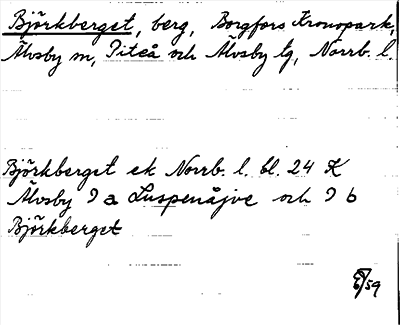 Björkberget, berg, Borgfors Kronopark,
Älvsby m, Piteå och Älvsby tg, Norrb. l.
Björkberget ek Norrb. l. bl. 24 K
Älvsby 9 a Luspenåjve och 9 b
Björkberget
/59